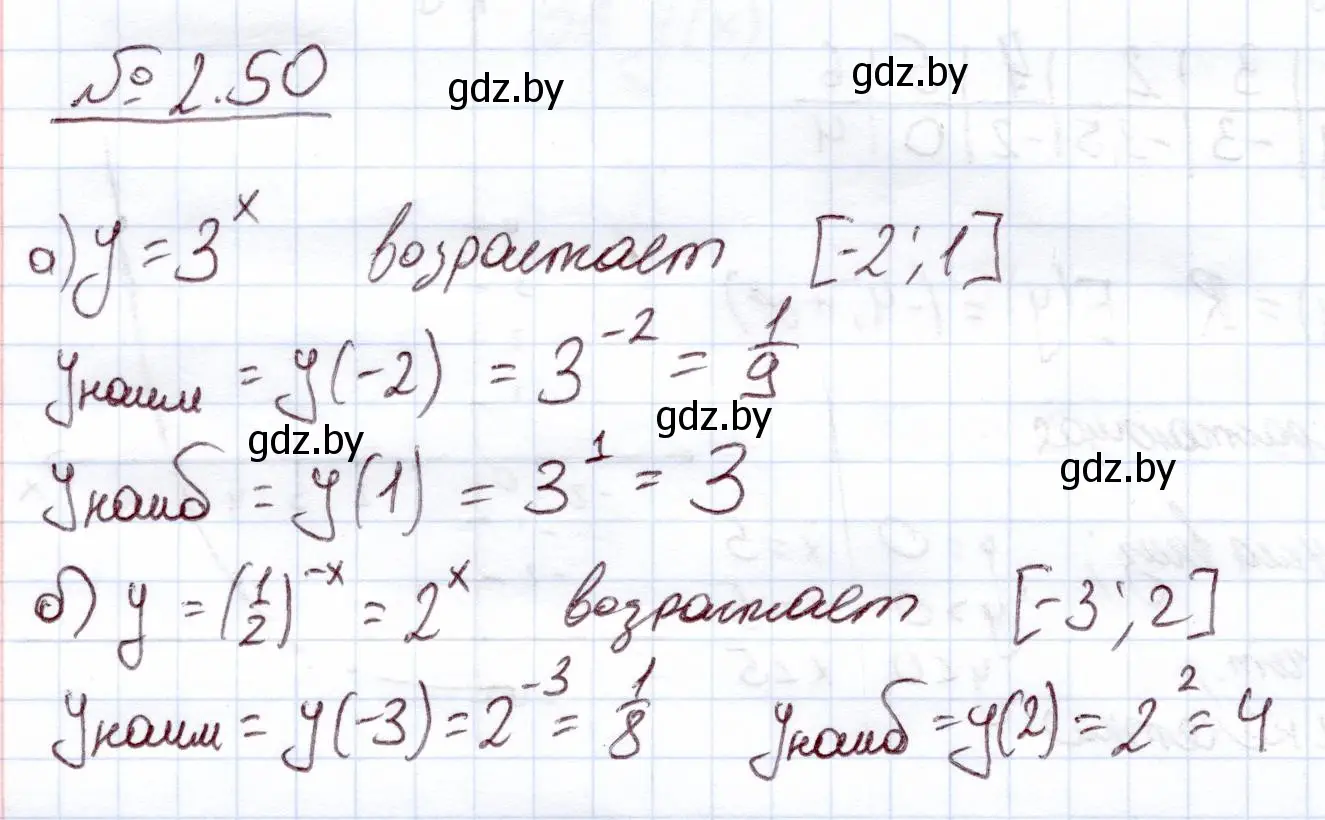 № 2.50
gdz.by
gdz.by
а) y = 3^x возрастает [-2; 1]
yнаим = y(-2) = 3^-2 = 1/9
gdz.by
gdz.by
yнаиб = y(1) = 3^1 = 3
gdz.by
б) y = (1/2)^-x = 2^x возрастает [-3; 2]
yнаим = y(-3) = 2^-3 = 1/8 yнаиб = y(2) = 2^2 = 4